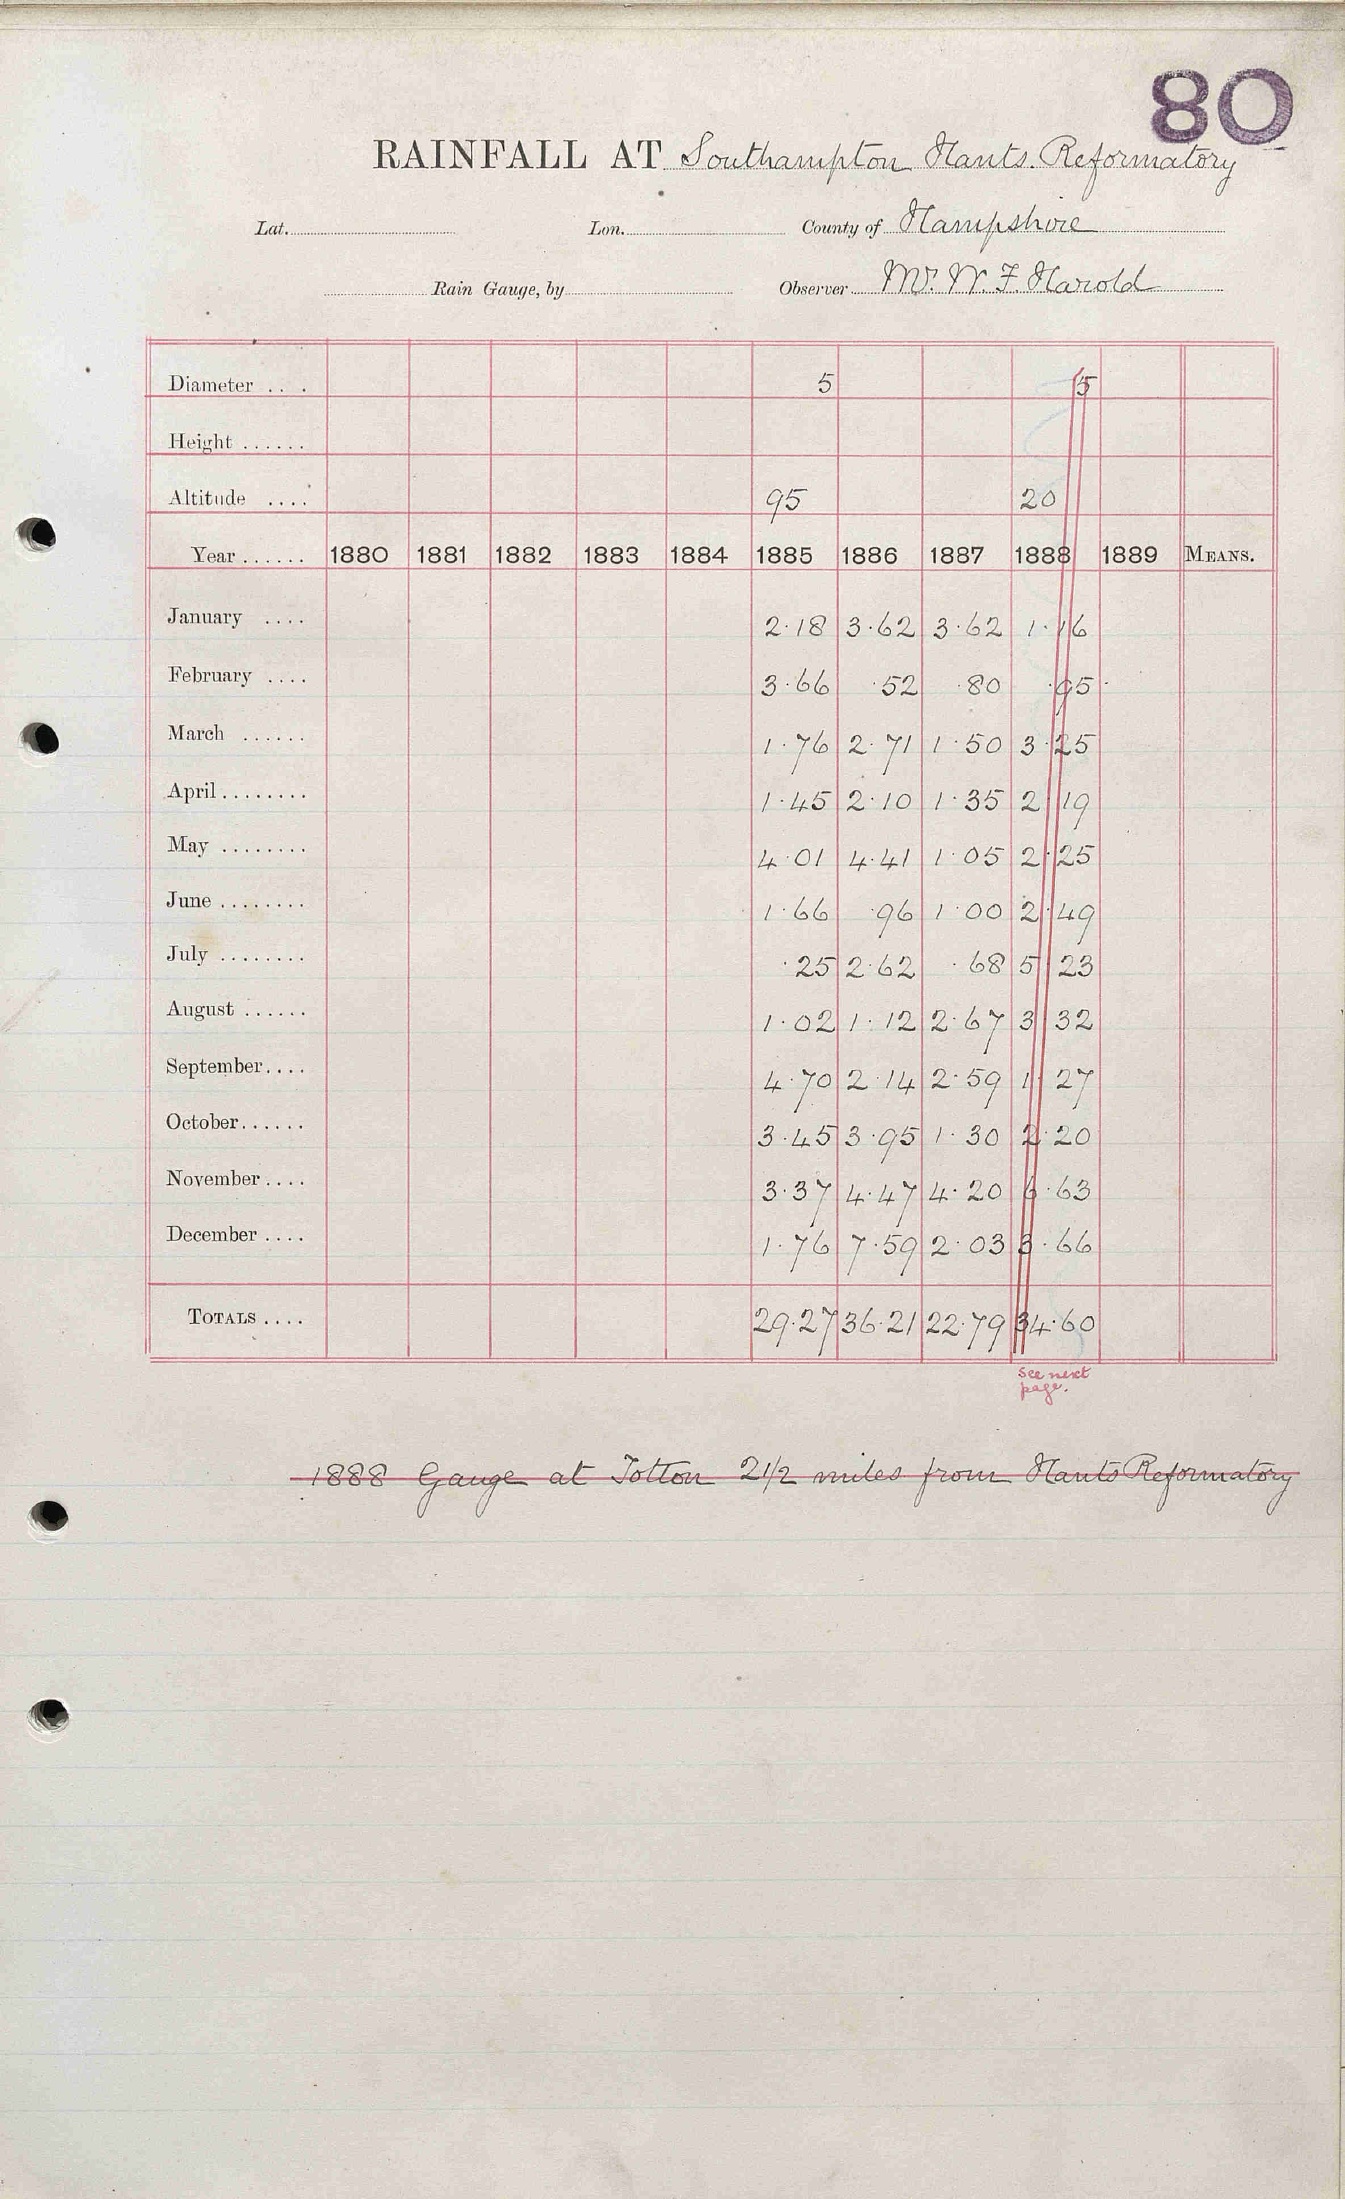 80
RAINFALL AT Southampton Hants. Reformatory
Lat. Lon. County of Hampshire
Rain Gauge, by Observer Mr. W. F. Harold
Diameter . . . 5 5
Height ......
Altitude .... 95 20
Year ...... 1880 1881 1882 1883 1884 1885 1886 1887 1888 1889 MEANS.
January .... 2·18 3·62 3·62 1·16
February .... 3·66 ·52 ·80 ·95
March ...... 1·76 2·71 1·50 3·25
April ........ 1·45 2·10 1·35 2 19
May ........ 4·01 4·41 1·05 2·25
June ........ 1·66 ·96 1·00 2·49
July ........ ·25 2·62 ·68 5 23
August ...... 1·02 1·12 2·67 3 32
September.... 4·70 2·14 2·59 1· 27
October...... 3·45 3·95 1·30 2·20
November.... 3·37 4·47 4·20 6·63
December .... 1·76 7·59 2·03 3·66
TOTALS .... 29·27 36·21 22·79 34·60
see next
page.
1888 Gauge at Totton 2 1/2 miles from Hants Reformatory